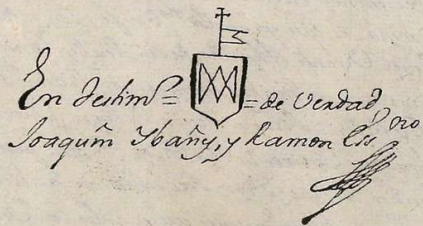 En testim.º = = de Verdad,
Joaquin Ybañ, y Ramon Ess.no